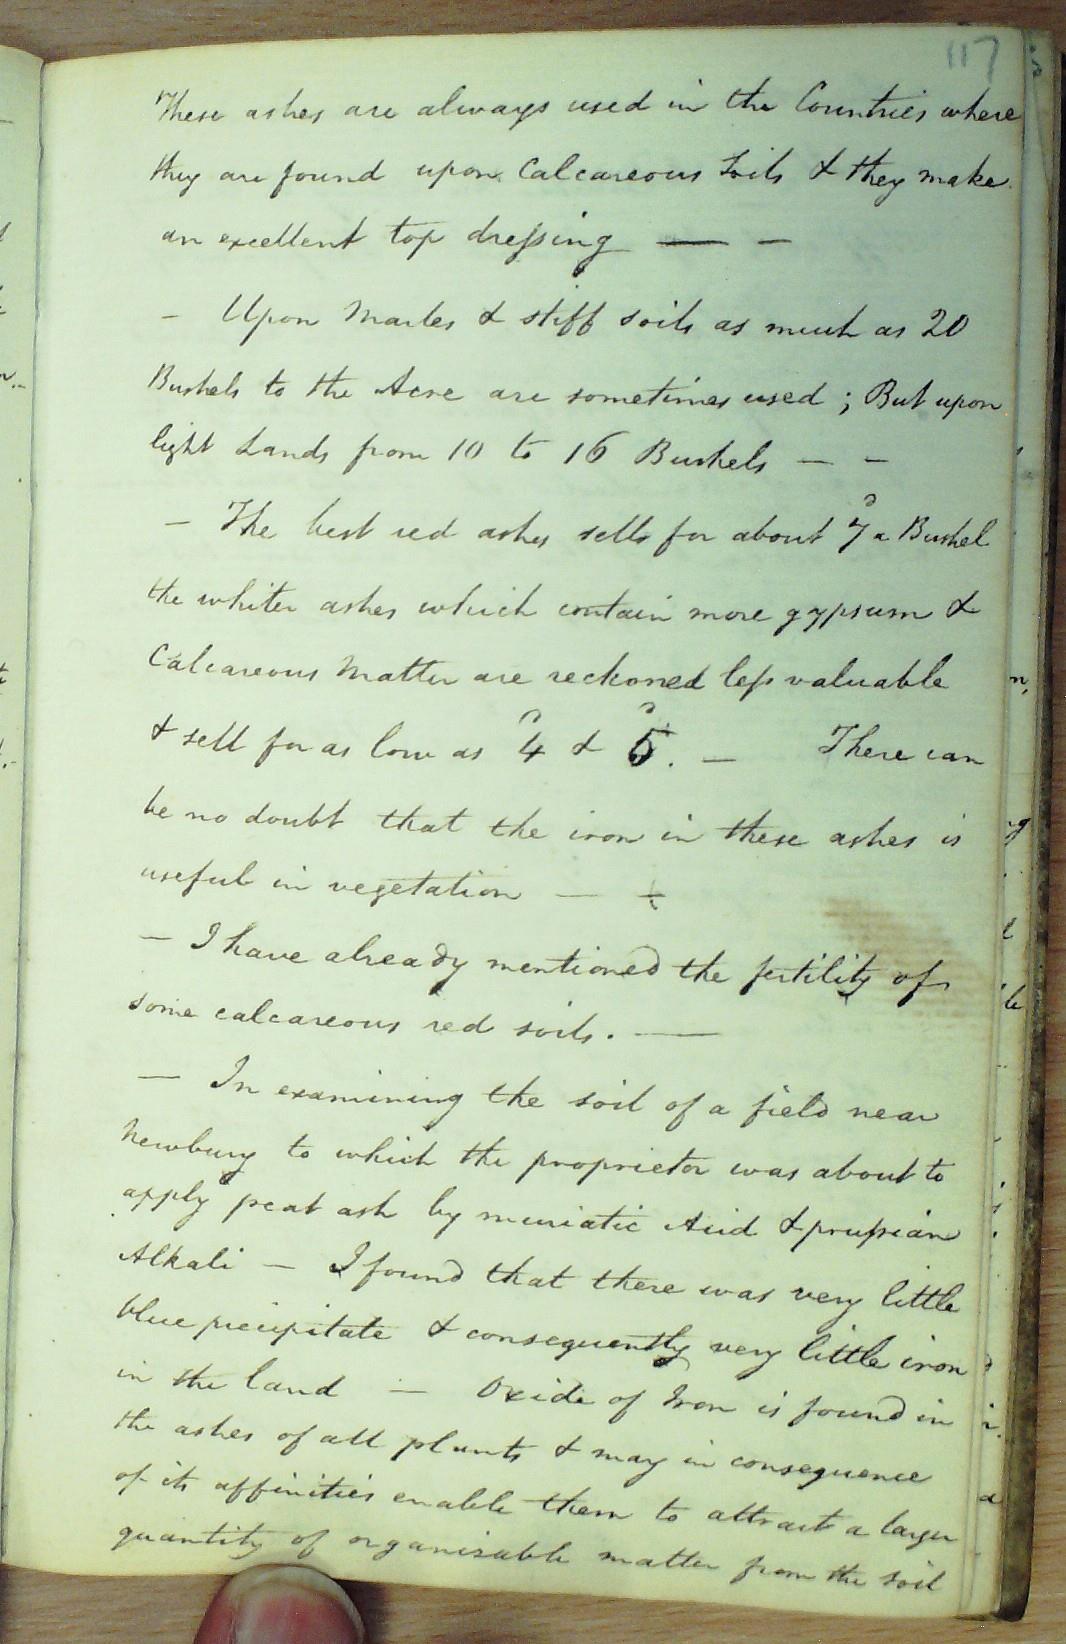 117
These ashes are always used in the Countries where
they are found upon Calcareous Soils & they make
an excellent top dreſsing — —
— Upon Marles & stiff soils as much as 20
Bushels to the Acre are sometimes used ; But upon
light Lands from 10 to 16 Bushels — —
— The best red ashes sells for about 7d a Bushel
the whiter ashes which contain more gypsum &
Calcareous Matter are reckoned leſs valuable
& sell for as low as 4d & 5d. — There can
be no doubt that the iron in these ashes is
useful in vegetation — +
— I have already mentioned the fertility of
some calcareous red soils. —
— In examining the soil of a field near
Newbury to which the proprietor was about to
apply peat ash by muriatic Acid & pruſsian
Alkali — I found that there was very little
blue precipitate & consequently very little iron
in the land — Oxide of Iron is found in
the ashes of all plants & may in consequence
of its affinities enable them to attract a larger
quantity of organisable matter from the soil